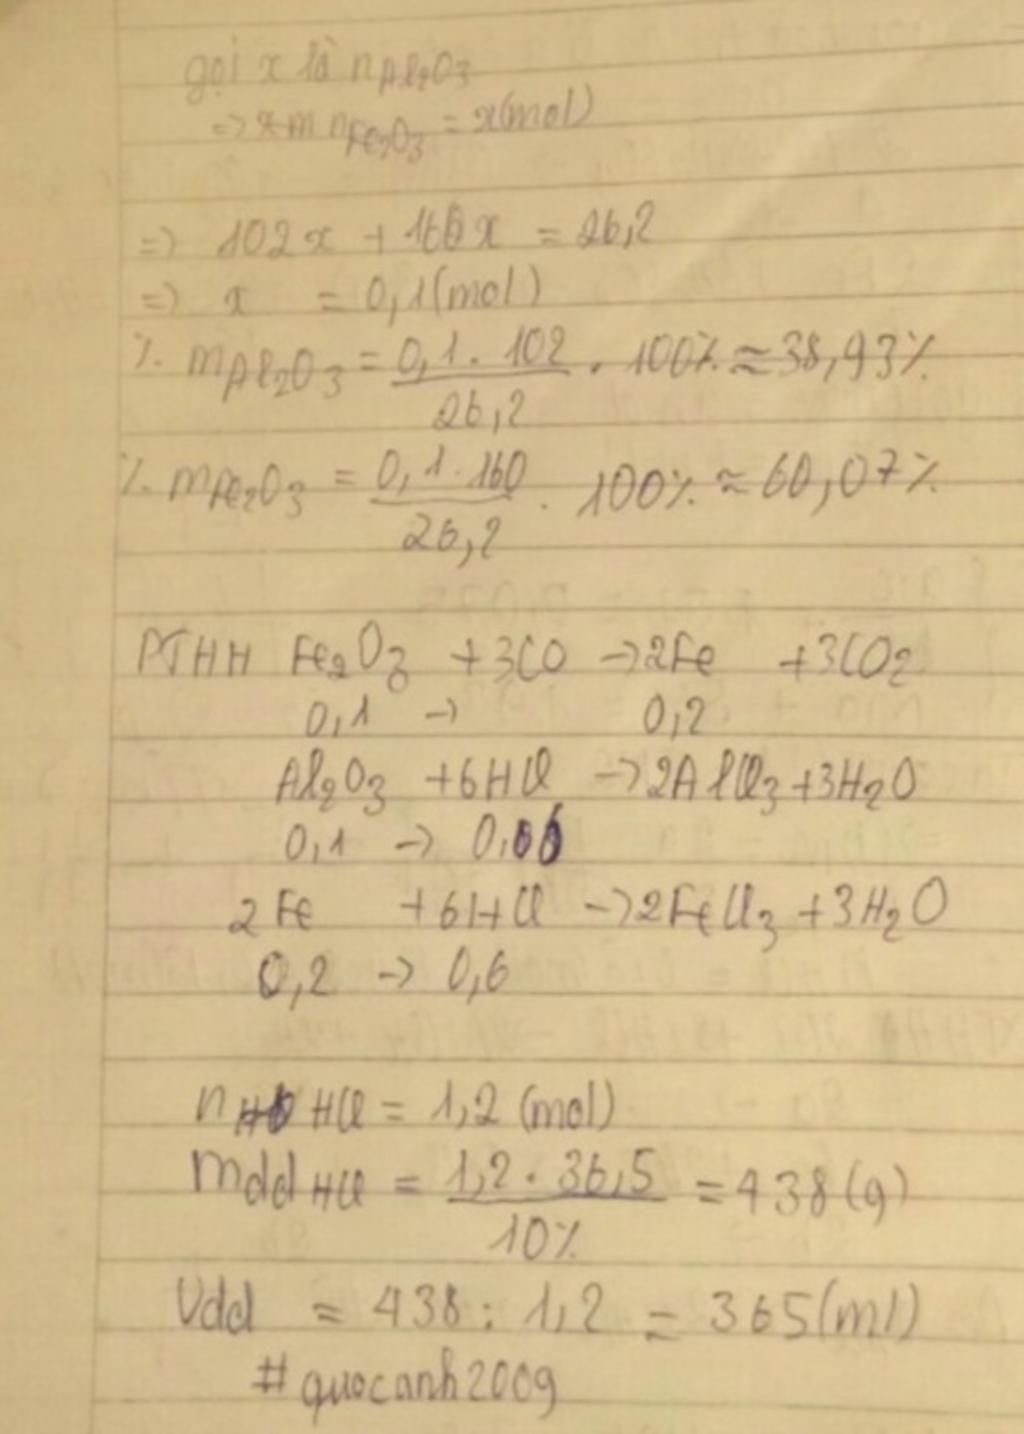 gọi x là nAl2O3
=> x m nFe2O3 = x(mol)
=> 102x + 160x = 26,2
=> x = 0,1(mol)
% mAl2O3 = 0,1 . 102 / 26,2 . 100% ≈ 38,93%
% mFe2O3 = 0,1 . 160 / 26,2 . 100% ≈ 60,07%
PTHH Fe2O3 + 3CO -> 2Fe + 3CO2
0,1 -> 0,2
Al2O3 + 6HCl -> 2AlCl3 + 3H2O
0,1 -> 0,6
2Fe + 6HCl -> 2FeCl3 + 3H2O
0,2 -> 0,6
nHCl = 1,2 (mol)
mdd HCl = 1,2 . 36,5 / 10% = 438(g)
Vdd = 438 : 1,2 = 365(ml)
#quocanh2009